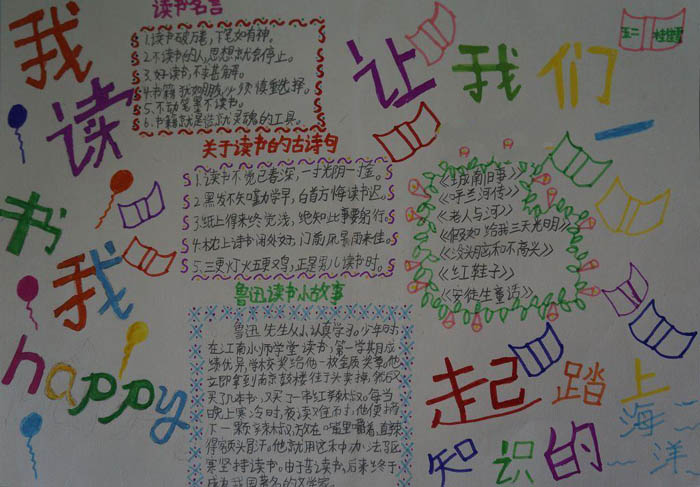 我
读
书
我
happy
读书名言
1.读书破万卷,下笔如有神。
2.不读书的人,思想就会停止。
3.好读书,不求甚解。
4.书籍犹如朋友,必须慎重选择。
5.不动笔墨不读书。
6.书籍就是造就灵魂的工具。
关于读书的古诗句
1.读书不觉已春深,一寸光阴一寸金。
2.黑发不知勤学早,白首方悔读书迟。
3.纸上得来终觉浅,绝知此事要躬行。
4.枕上诗书闲处好,门前风景雨来佳。
5.三更灯火五更鸡,正是男儿读书时。
鲁迅读书小故事
鲁迅先生从小认真学习。少年时
在江南水师学堂读书,第一学期成
绩优异,学校奖给他一枚金质奖章。他
立即拿到南京鼓楼街头卖掉,然后又
买了几本书,又买了一串红辣椒。每当
晚上寒冷时,夜读难耐,他便摘
下一颗辣椒,放在嘴里嚼着,直辣
得额头冒汗。他就用这种办法驱
寒坚持读书。由于苦读书,后来终于
成为我国著名的文学家。
让我们
五二
《城南旧事》
《呼兰河传》
《老人与河》
《假如给我三天光明》
《没头脑和不高兴》
《红鞋子》
《安徒生童话》
一起踏上
知识的海洋